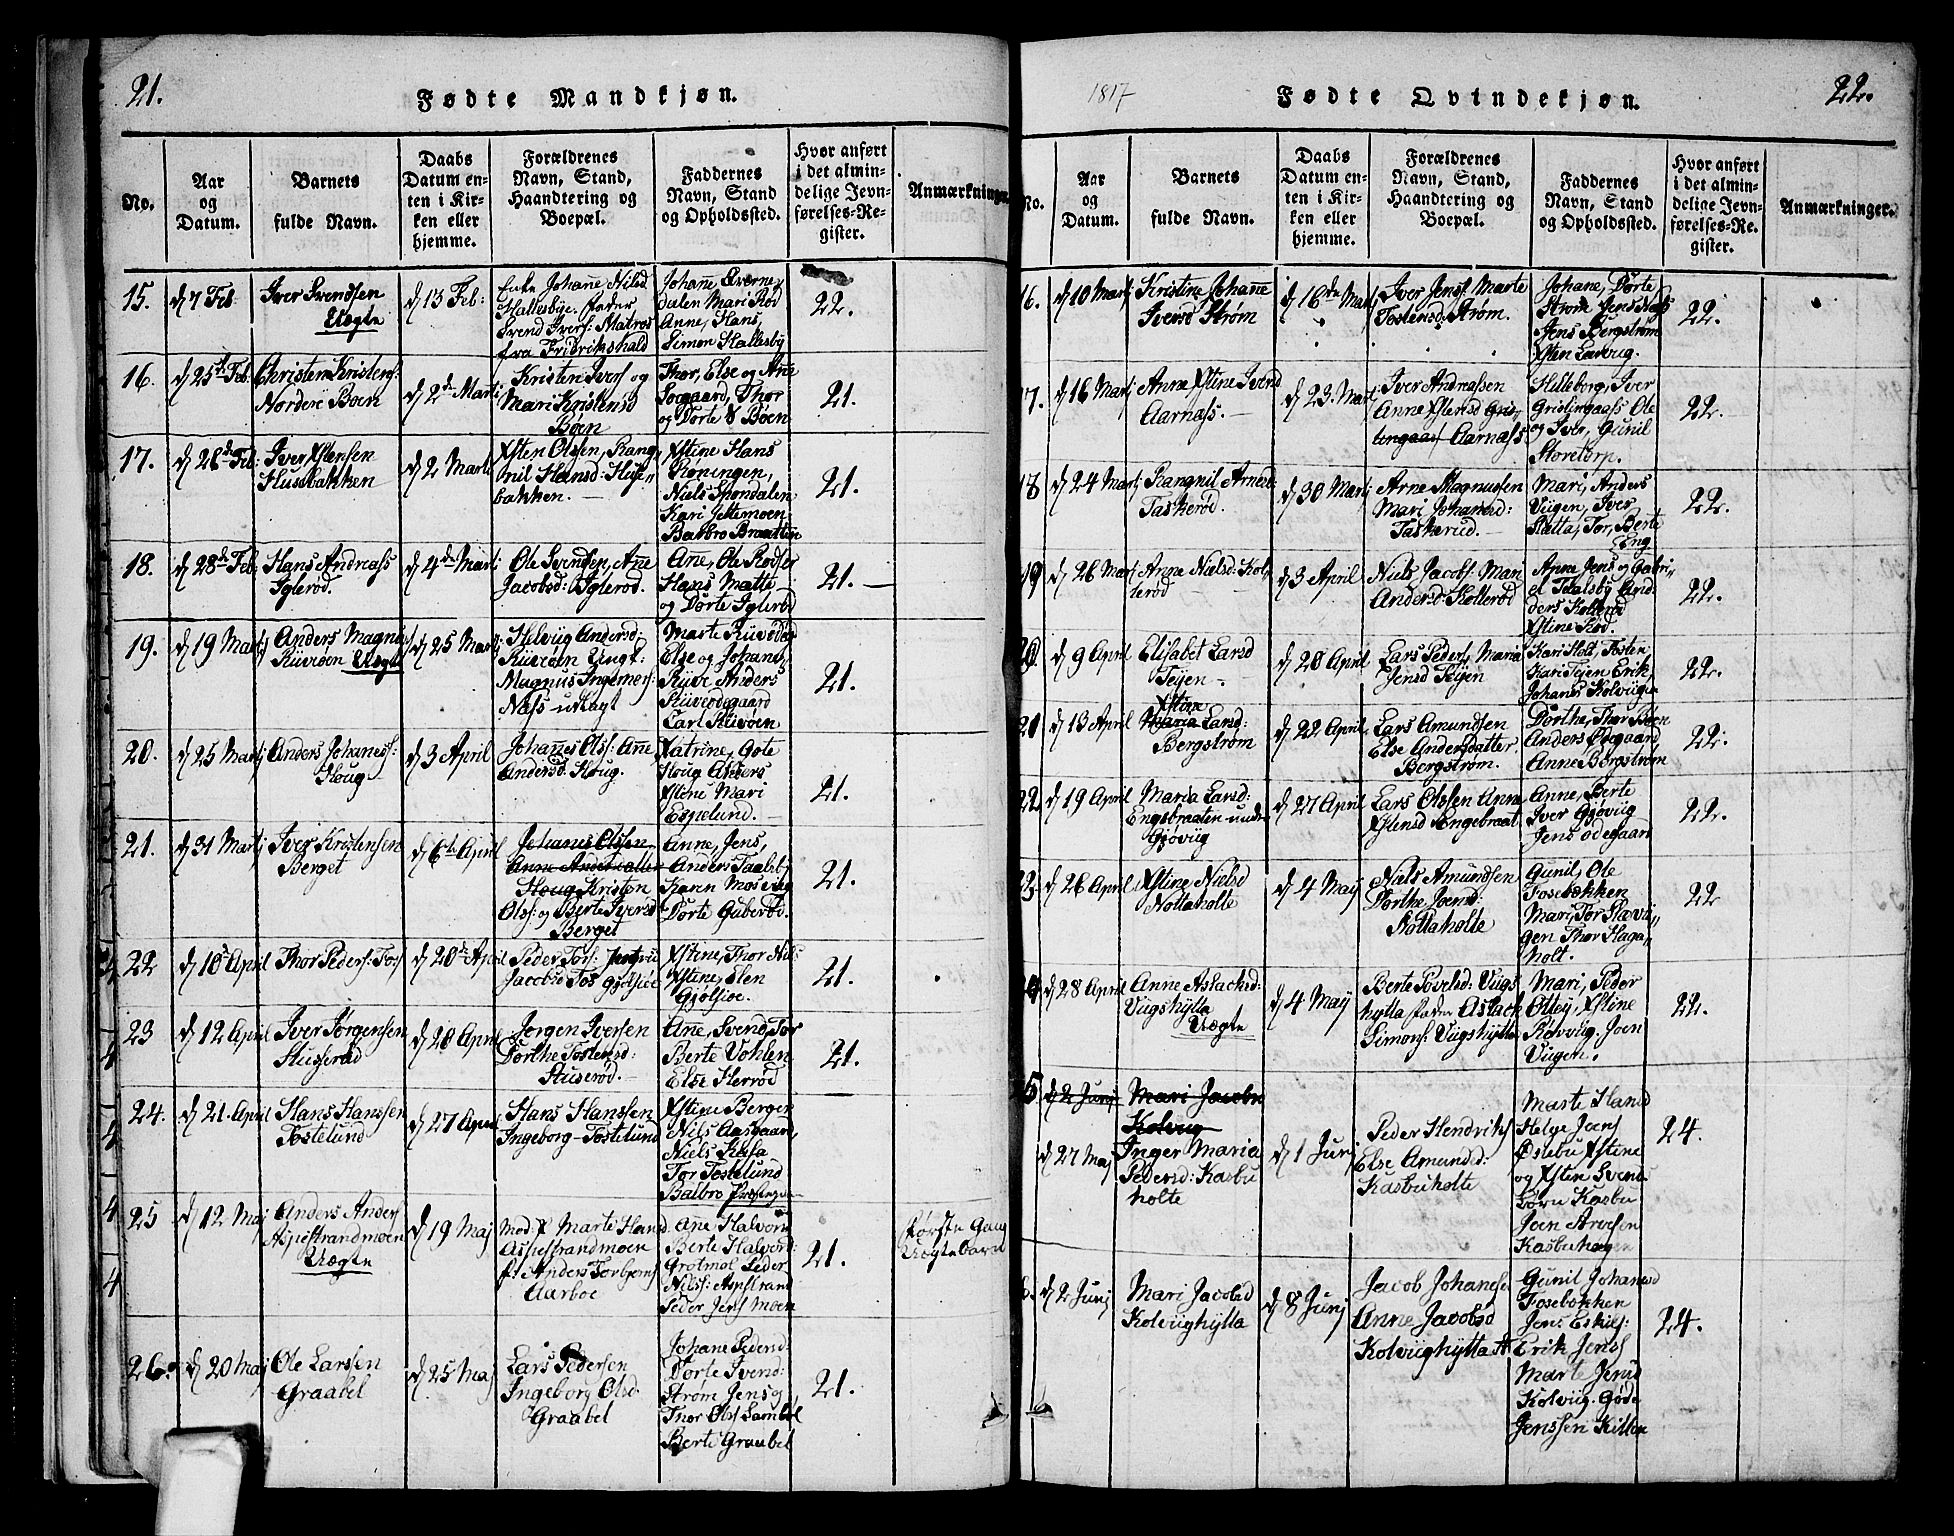 21.
Fødte Mandkjøn.
No.
Aar
og
Datum.
Barnets
fulde Navn.
Daabs
Datum en-
ten i Kir-
ken eller
hjemme.
Forældrenes
Navn, Stand,
Haandtering og
Boepæl.
Faddernes
Navn, Stand
og Opholdssted.
Hvor anført
i det almin-
delige Jevn-
førelses-Re-
gister.
Anmærkninger.
15.
d 7 Feb:
Iver Svendsen
Uægte
d 13 Feb:
Enke Johane Nilsd
Hallesbye fader
Svend Ivers: Matros
fra Fridrikshald
Johane Qverne
dalen Mari Rød
Anne, Hans,
Simen Hallesby
22.
16.
d 25de Feb:
Christen Kristens:
Nordere Boen
d 2de Marti
Kristen Ivers og
Mari Kristensd
Bøen
Thor, Else og Ane
Soegaard, Thor
og Dorte Bøen
21.
17.
d 28de Feb:
Iver Xstensen
Husebakken
d 2 Marti
Xsten Olsen, Rang
nil Hansd: Huse
bakken.
Xstine Hans
Roningen,
Niels Spondalen
Kari Jettemoen
Balbro Braatten
21.
18.
d 28de Feb
Hans Andreass
Iglerød.
d 4de Marti
Ole Svendsen, Ane
Jacobsd: Iglerød.
Ane, Ole Rødser
Hans Matte
og Dorte Iglerød
21.
19.
d 19 Martj
Anders Magnus
Riiverøen Uægte
d 25 Martj
Helviig Andersd:
Riiverøen Ungk:
Magnus Ingemers:
Næss udlagt
Marte Riiverødeg
Else og Johane
Riiv: Anders
Riiverødegaard
Carl Riiverøen
21.
20.
d 25 Martj
Anders Johaness:
Houg
d 3 April
Johanes Olss: Ane
Andersd Houg.
Katrine, Gote
Houg Anders
Xstine Mari
Espelund.
21.
21.
d 31 Martj
Iver Kristensen
Berget
d 6te April
Johanes Olssen
Anne Andersdatter
Houg Kristen
Olss: og Berte Iversd
Berget
Anne, Jens,
Anders Taalsby
Karen Mosevug
Dorte Gaberød.
21.
22
d 10 April
Thor Peders: Tos
d 20de April
Peder Tors:
Jacobsd Tos Gjølsjøe
Xstine, Thor Nil:
Xstine, Elen
Gjølsjøe.
21.
23
d 12 April
Iver Jørgensen
Stuserød
d 20 April
Jørgen Iversen
Dorthe Tostensd:
Stuserød.
Ane, Svend, Tor
Berte Vohlen
Else Herrød
21.
24.
d 21. April
Hans Hanssen
Tostelund
d 27 April
Hans Hanssen
Ingeborg Tostelund
Xstine Bergen
Nils Aasgaar,
Niels Kasa
Tor Tostelund
Balbro
21.
25
d 12 Maj
Anders Anders
Aspestrandmoen
Uægte
d 19 Maj
Mod: P Marte Hansd
Aspestrandmoen
f: Anders Torbjørns
Aarboe
Ane Halvors
Berte Halvord:
Grotmol Peder
Nilss: Aspestrand
Peder Jens Moen
21.
Første Gang
Uægte barn
26.
d 20 Maj
Ole Larssen
Graabøl
d 25 Maj
Lars Pedersen
Ingeborg Olsd
Graabøl
Johane Pedersd:
Dorte Iversd:
Strøm Jens og
Thor Olss Sambøl
Berte Graabøl
21.
1817
Fødte Qvindekjøn.
22.
No.
Aar
og
Datum.
Barnets
fulde Navn.
Daabs
Datum en-
ten i Kir-
ken eller
hjemme.
Forældrenes
Navn, Stand,
Haandtering og
Boepæl.
Faddernes
Navn, Stand
og Opholdssted.
Hvor anført
i det almin-
delige Jevn-
førelses-Re-
gister.
Anmærkninger.
16.
d 10 Martj
Kristine Johane
Iversd Strøm
d 16de Mart
Iver Jens Marte
Tostensd: Strøm.
Johane, Dorte,
Strøm Jens
Jens Bergstrøm
Xsten Lervug.
22.
17.
d 16 Martj
Anne Xstine Iversd
Aarnass.
d 23. Mart
Iver Andreassen
Anne Xstensd Gris
lingaas Aarnass
Hilleborg, Iver
Grislingaass Ole
og Iver, Gunil
Storetorp.
22.
18
d 24 Martj
Rangnil Arnesd:
Taskerød.
d 30 Martj
Arne Magnussen
Mari Johanesd:
Taskerud.
Mari, Anders
Viigen, Iver
Slatta, Tor, Berte
Eng
22.
19
d 26 Martj
Anne Nielsd: Kol
lerød
d 3 April
Niels Jacobs: Mari
Andersd: Kollerød
Anne Jens og Gabri
el Taalsby And
ders Kollerød
Xstine Rød.
22.
20
d 9 April
Elisabet Larsd
Teijen
d 20 April
Lars Peders, Maria
Jensd Teijen
Kari Holt, Tosten
Kari Teijen Erik,
Johanes Kolviigen
22.
21
d 13 April
Xstine
Maria Larsd:
Bergstrøm
d 22 April
Lars Amundsen
Else Andersdatter
Bergstrøm.
Dorthe, Thor Boen
Anders Ødegaard
Anne Bergstrøm
22.
22
d 19 April
Maria Larsd:
Engebraaten under
Gjøviig
d 27 April
Lars Olssen Anne
Xstensd Engebraat
Anne, Berte
Iver Gjøviig
Jens Ødegaard
22.
23.
d 26 April
Xstine Nielsd
Nottaholte
d 4 Maij
Niels Amundsen
Dorthe Joensd:
Nottaholte
Gunil, Ole
Fosebækken
Mari, Tor Slævi
gen Thor Haga
holt.
22
24
d 28 April
Anne Aslacksd:
Viigshytta
Uægte
d 4 Maij
Berte Povelsd: Viigs
hytta fader Aslack
Simons: Viigshytta
Mari, Peder
Otteij, Xstine
Rølviig, Joen
Viigen.
22.
25
d 2 Junj
Mari Jacobs
Kolvug
d 27 Maj
Inger Maria
Pedersd: Kasbu
holte
d 1 Junj
Peder Hendriks
Else Amundsd:
Kasbuholte
Marte Hansd
Helge Joens
Østebu Xstine
og Xsten Svens
Børn Kasbu
Joen Arvesen
Kasbuhagen
24.
d 2 Junj
Mari Jacobsd
Kolviighytta
d 8 Junj
Jacob Johanesen
Anne Jacobsd
Kolviighytta
Gunil Johanesd
Fosebækken
Jens Eskils:
Erik Jenss
Marte Jensd
Kolviig. Gøde
Jenssen Kitten
24.